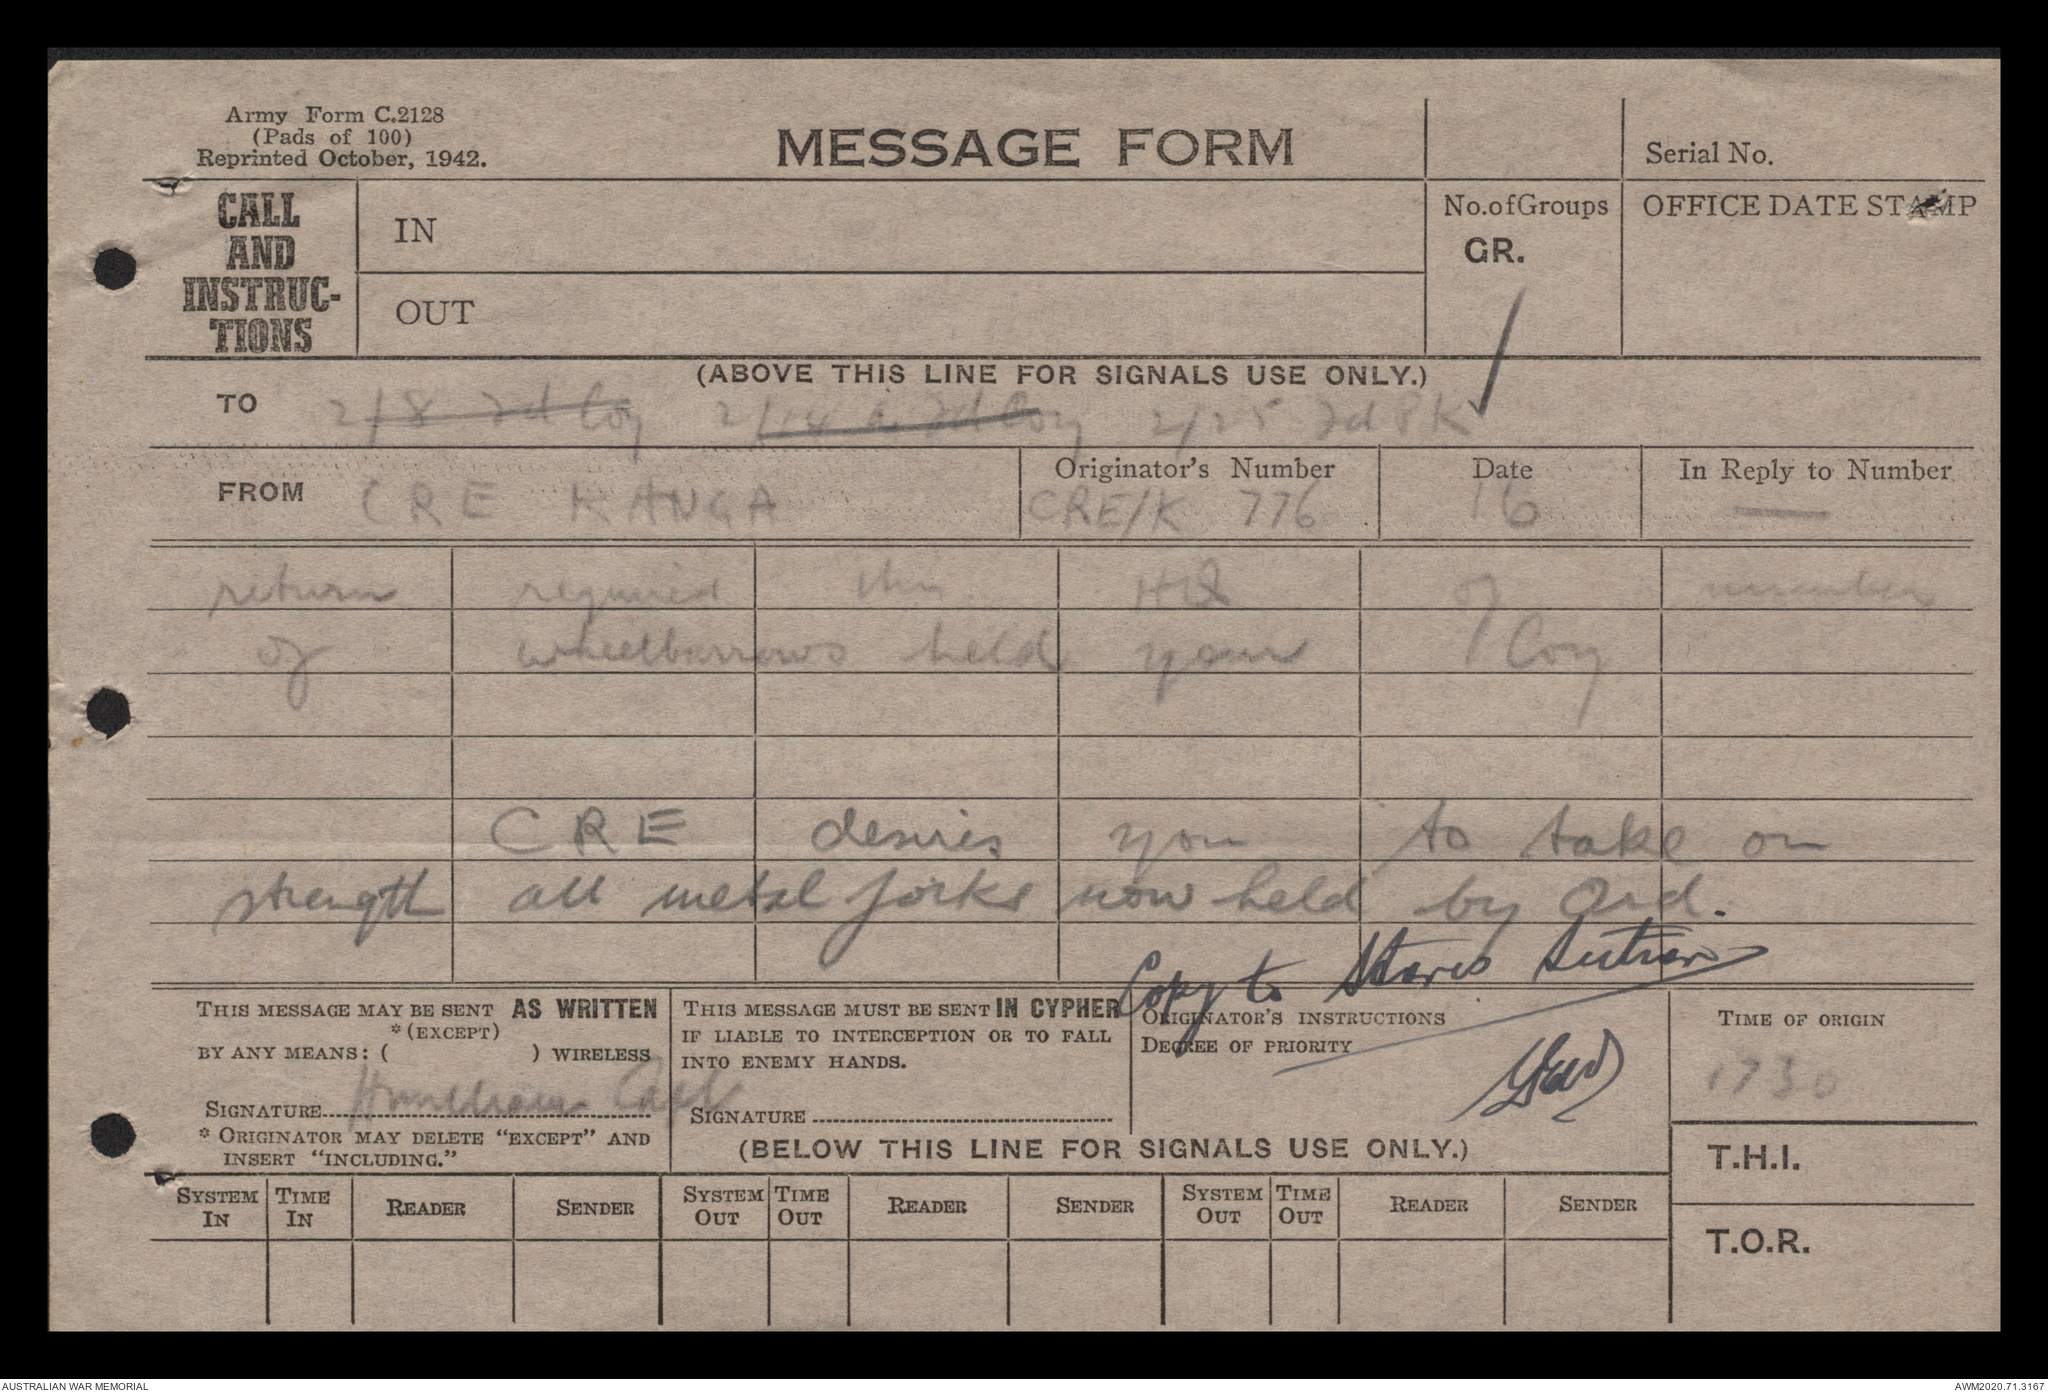 Army Form C.2128
(Pads of 100)
Reprinted October, 1942.
MESSAGE FORM
Serial No.
CALL
AND
INSTRUC-
TIONS
IN
OUT
No.of Groups
GR.
OFFICE DATE STAMP
(ABOVE THIS LINE FOR SIGNALS USE ONLY.)
TO 2/8 Fd Coy 2/14 Fd Coy 2/25 Fd PK
FROM CRE KANGA
Originator's Number
CRE/K 776
Date
16
In Reply to Number
—
return required this HQ of number
of wheelbarrows held your Coy
CRE desires you to take on
strength all metal forks now held by Ord.
Copy to Stores Section
THIS MESSAGE MAY BE SENT AS WRITTEN
*(EXCEPT)
BY ANY MEANS: ( ) WIRELESS
SIGNATURE
* ORIGINATOR MAY DELETE "EXCEPT" AND
INSERT "INCLUDING."
THIS MESSAGE MUST BE SENT IN CYPHER
IF LIABLE TO INTERCEPTION OR TO FALL
INTO ENEMY HANDS.
SIGNATURE
ORIGINATOR'S INSTRUCTIONS
DEGREE OF PRIORITY
TIME OF ORIGIN
1730
(BELOW THIS LINE FOR SIGNALS USE ONLY.)
T.H.I.
T.O.R.
SYSTEM IN TIME IN READER SENDER SYSTEM OUT TIME OUT READER SENDER SYSTEM OUT TIME OUT READER SENDER
AUSTRALIAN WAR MEMORIAL
AWM2020.71.3167